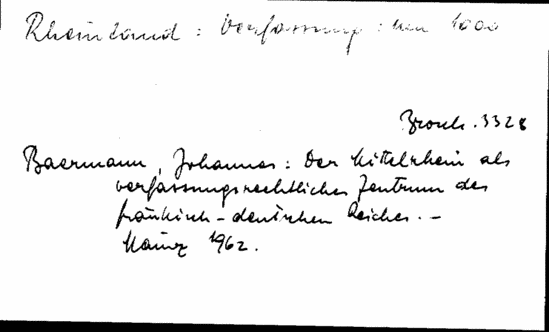 Rheinland : Verfassung : um 1000
Brosch. 3328
Baermann, Johannes: Der Mittelrhein als
verfassungsrechtliches Zentrum des
fränkisch-deutschen Reiches. -
Mainz 1962.